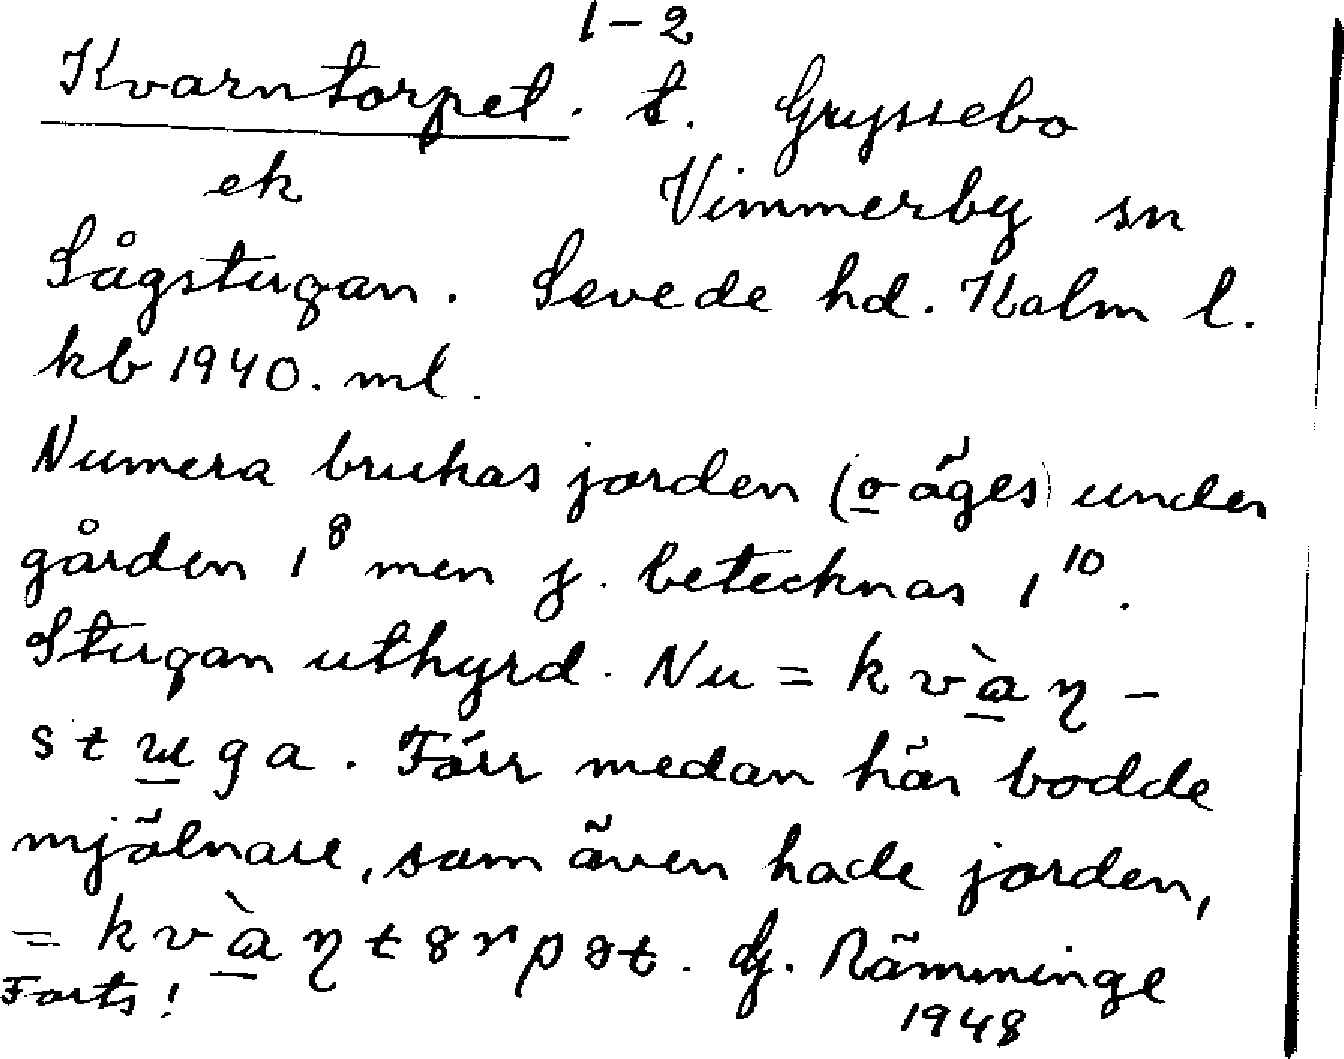 1-2
Kvarntorpet. t. Gryssebo
ek Vimmerby sn
Sågstugan. Sevede hd. Kalm l.
kb 1940. ml.
Numera brukas jorden (o äges) under
gården 1⁸ men j. betecknas 1¹⁰.
Stugan uthyrd. Nu = k v à η -
s t u g a. Förr medan här bodde
mjölnare, som även hade jorden,
= k v à η t 8 r p ə t. Rämminge
Forts! 1948